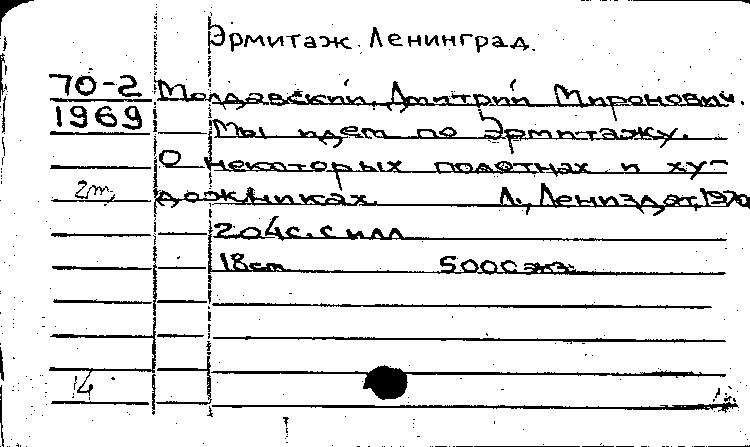 Эрмитаж. Ленинград.
70-2 Молдавский, Дмитрий Миронович.
1969 Мы идем по Эрмитажу.
О некоторых полотнах и ху-
2т, дожниках. Л., Лениздат, 1970
204с. с илл
18см 5000экз.
14